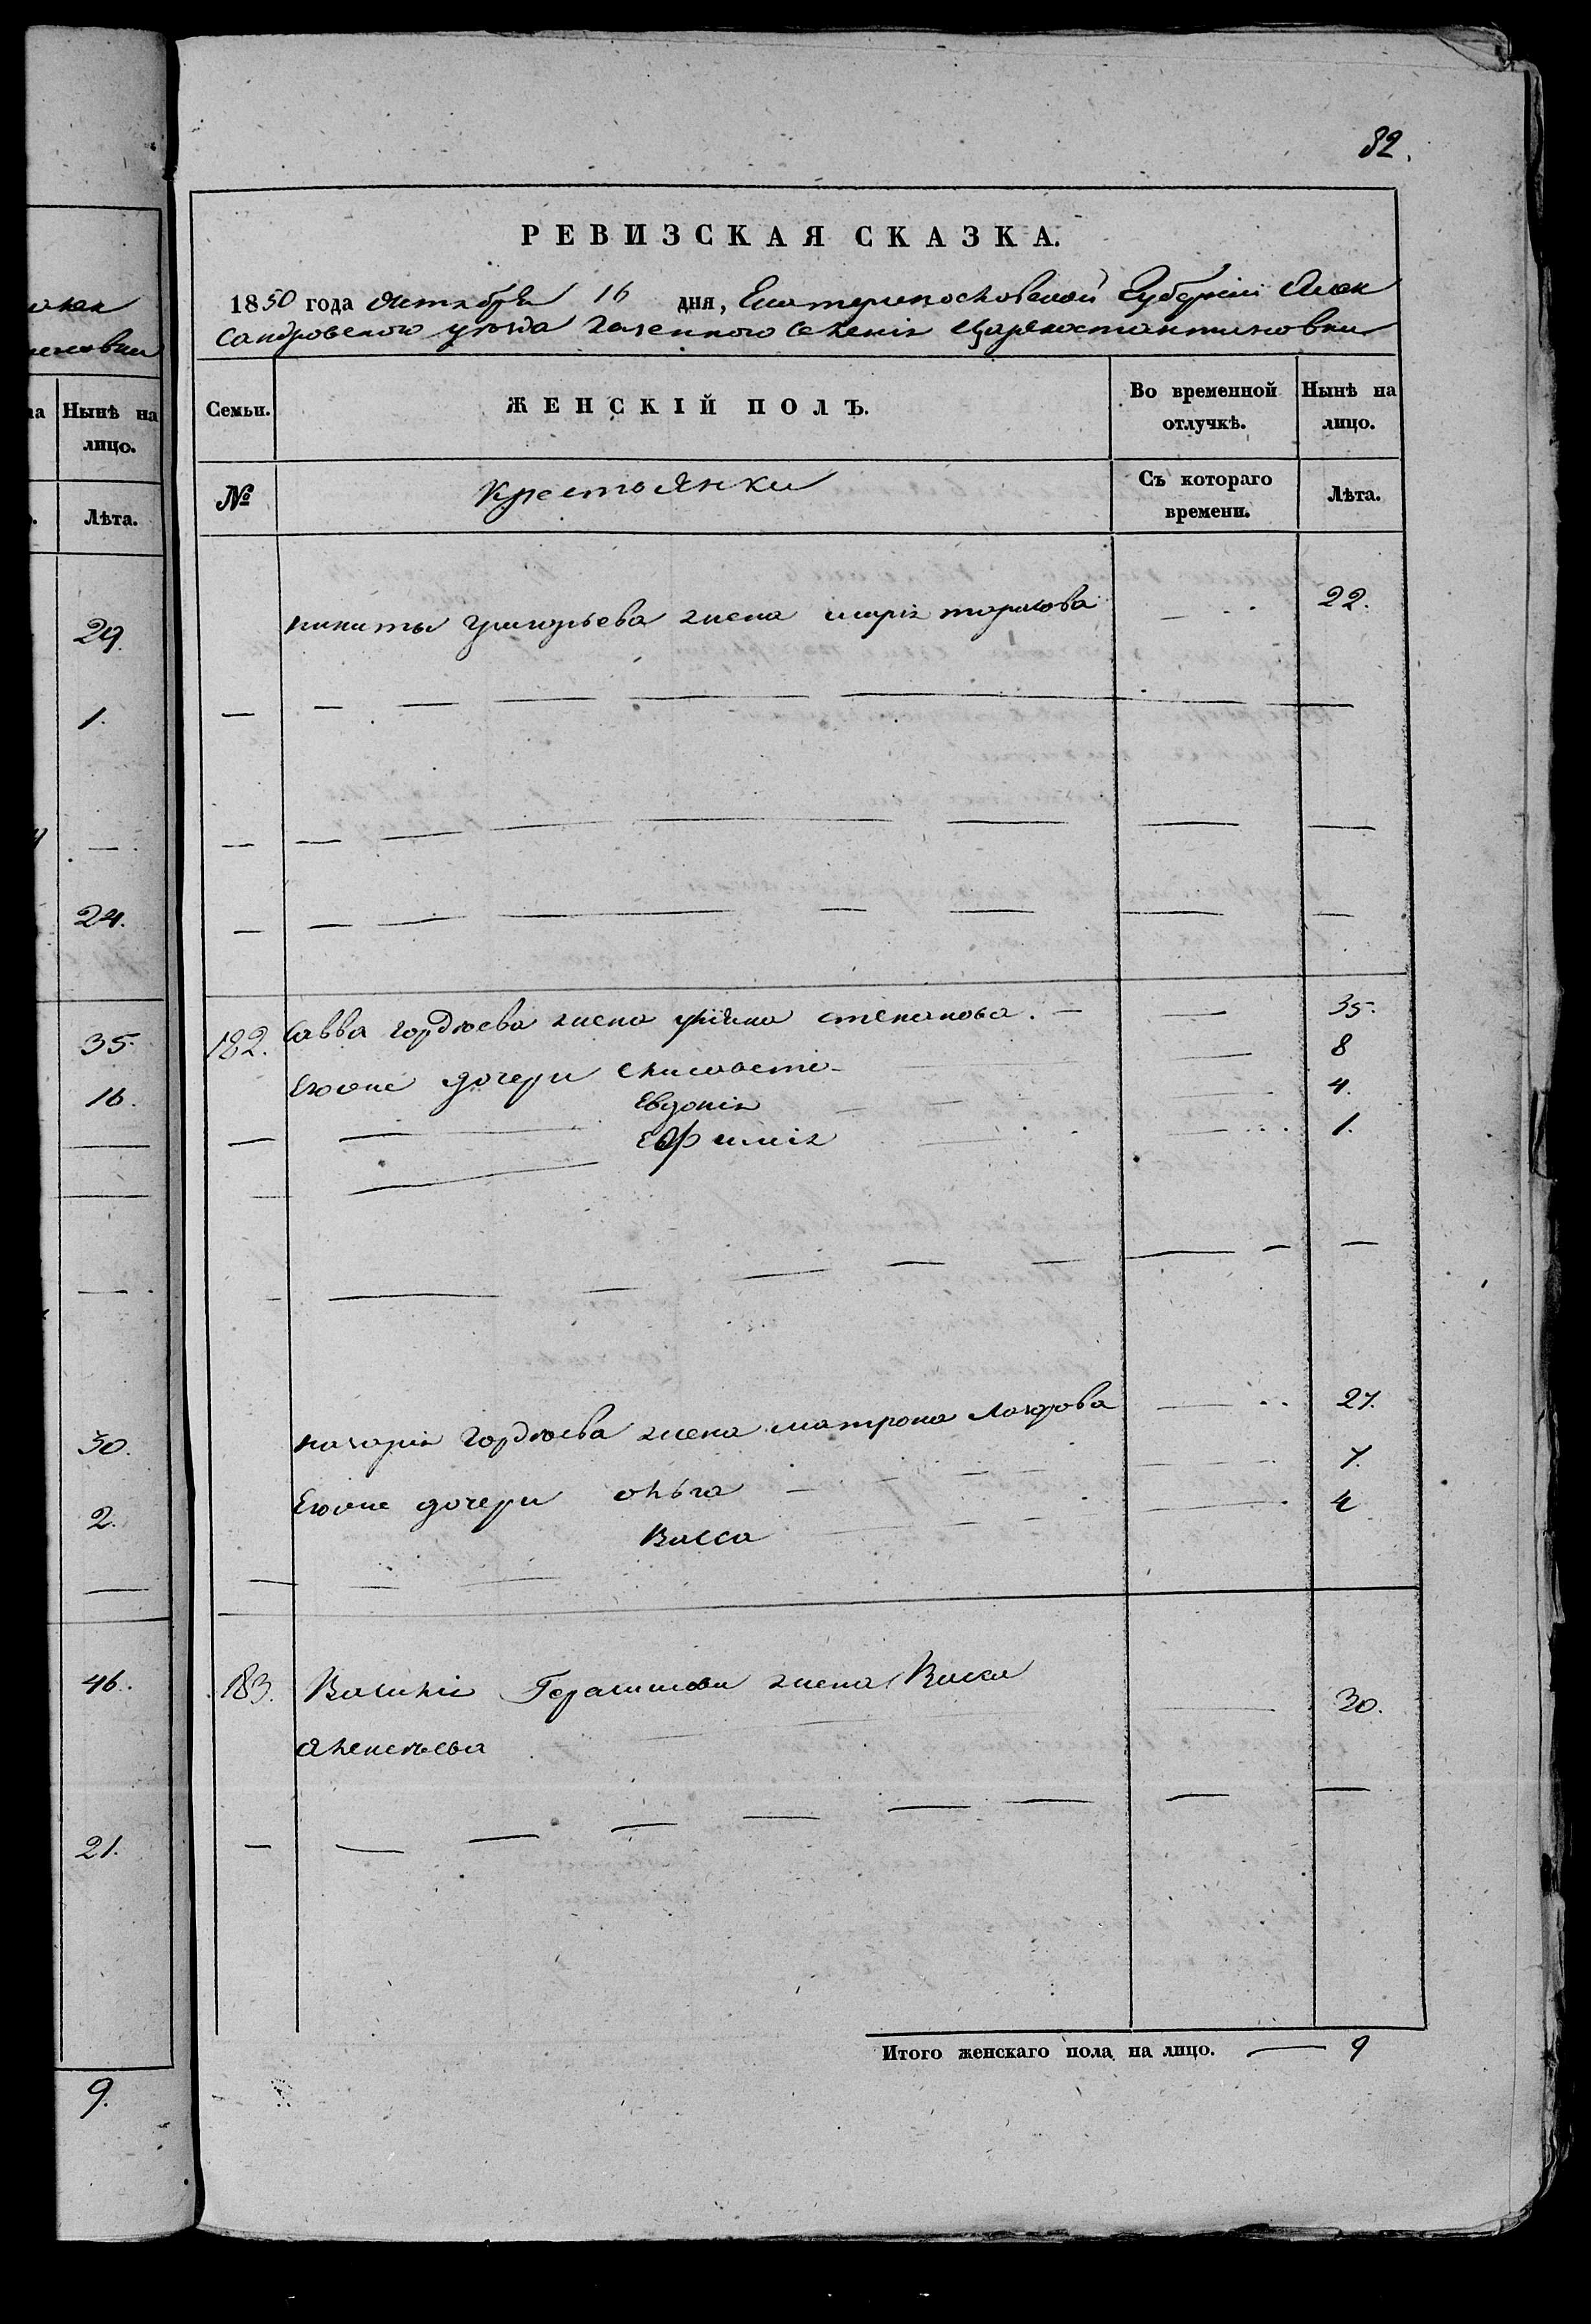 82.
РЕВИЗСКАЯ СКАЗКА.
1850 года октября 16 дня, Екатеринославской Губернии Алек
сандровского уезда казенного селения Цареконстантиновки
Семьи. ЖЕНСКІЙ ПОЛЪ. Во временной отлучкѣ. Нынѣ на лицо.
№ Крестьянки Съ котораго времени. Лѣта.
никиты григорьева жена марія 22.
182. Савва гордеева жена степанова. 35.
Егоже дочери Елисавета 8
Евдокія 4.
Ефимія 1.
назарія гордеева жена матрона 27.
Егоже дочери ольга 7.
Васса 4
183. Василія Герасимова жена Васса 30.
Итого женскаго пола на лицо. 9
Нынѣ на
лицо.
Лѣта.
29.
1.
24.
35.
16.
30.
2.
46.
21.
9.